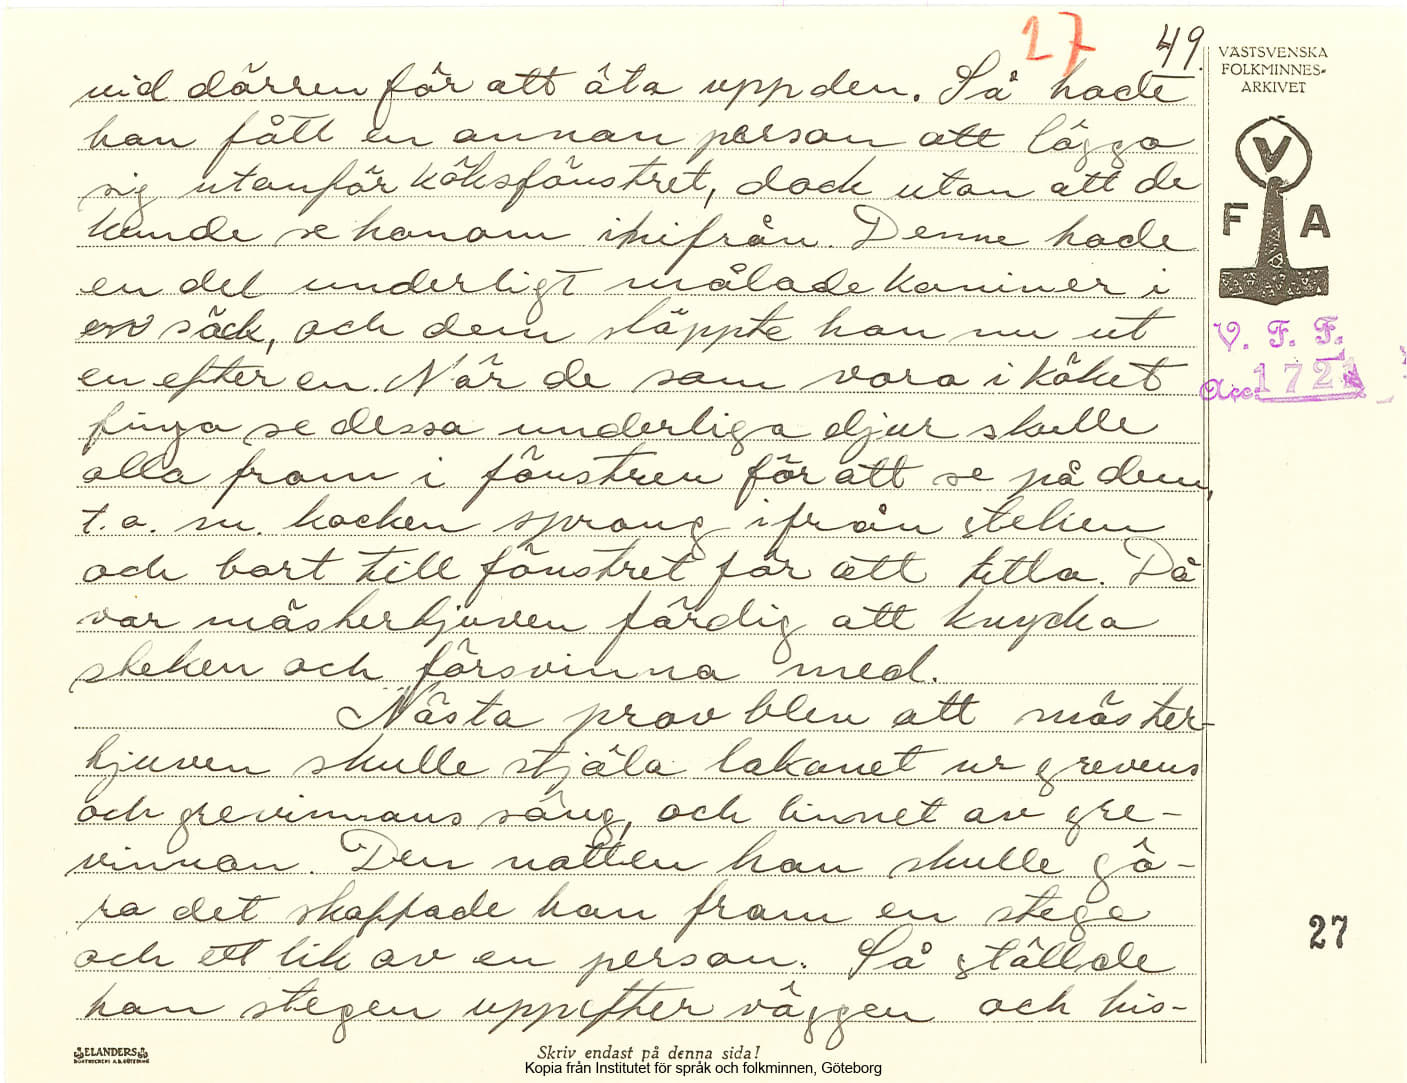 27
49.
VÄSTSVENSKA
FOLKMINNES-
ARKIVET
V
F A
V. F. F.
Acc. 1721
vid dörren för att äta upp den. Så hade
han fått en annan person att lägga
sig utanför köksfönstret, dock utan att de
kunde se honom inifrån. Denne hade
en del underligt målade kaniner i
en säck, och dem släppte han nu ut
en efter en. När de som vora i köket
fingo se dessa underliga djur skulle
alla fram i fönstren för att se på dem,
t.o.m. kocken sprang ifrån steken
och bort till fönstret för att titta. Då
var mästertjuven färdig att knycka
steken och försvinna med.
Nästa prov blev att mäster-
tjuven skulle stjäla lakanet ur grevens
och grevinnans säng, och linnet av gre-
vinnan. Den natten han skulle gö-
ra det skaffade han fram en stege
och ett lik av en person. Så ställde
han stegen uppefter väggen och his-
27
ELANDERS
BOKTRYCKERI A.B. GÖTEBORG
Skriv endast på denna sida!
Kopia från Institutet för språk och folkminnen, Göteborg